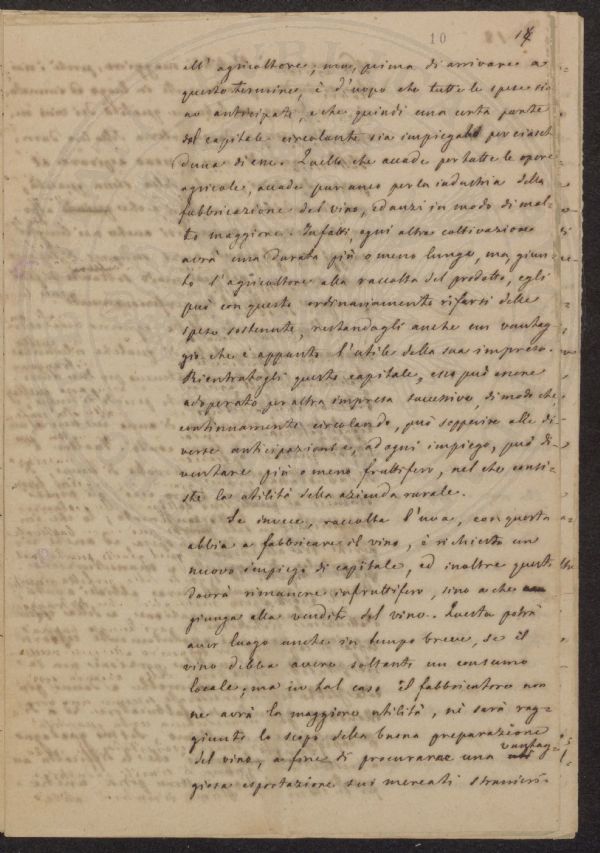 10
18
all' agricoltore; ma, prima di arrivare a
questo termine, è d'uopo che tutte le spese sia
no anticipate, e che quindi una certa parte
del capitale circolante sia impiegata per ciasche
duna di esse. Quello che accade per tutte le opere
agricole, accade pur anco per la industria della
fabbricazione del vino, ed anzi in modo di mol-
to maggiore. Infatti ogni altra coltivazione
avrà una durata più o meno lunga, ma, giun-
to l'agricoltore alla raccolta del prodotto, egli
può con questo ordinariamente rifarsi delle
spese sostenute, restandogli anche un vantag-
gio che è appunto l'utile della sua impresa.
Rientratogli questo capitale, esso può essere
adoperato per altra impresa successiva, di modo che
continuamente circolando, può sopperire alle di
verse anticipazioni e, ad ogni impiego, può di-
ventare più o meno fruttifero, nel che consi-
ste la utilità della azienda rurale.
Se invece, raccolta l'uva, con questa
abbia a fabbricare il vino, è richiesto un
nuovo impiego di capitale, ed inoltre questo
dovrà rimanere infruttifero, sino a che
giunga alla vendita del vino. Questa potrà
aver luogo anche in tempo breve, se il
vino debba avere soltanto un consumo
locale; ma in tal caso il fabbricatore non
ne avrà la maggiore utilità, nè sarà rag-
giunto lo scopo della buona preparazione
del vino, a fine di procurare una vantag-
giosa esportazione sui mercati stranieri.